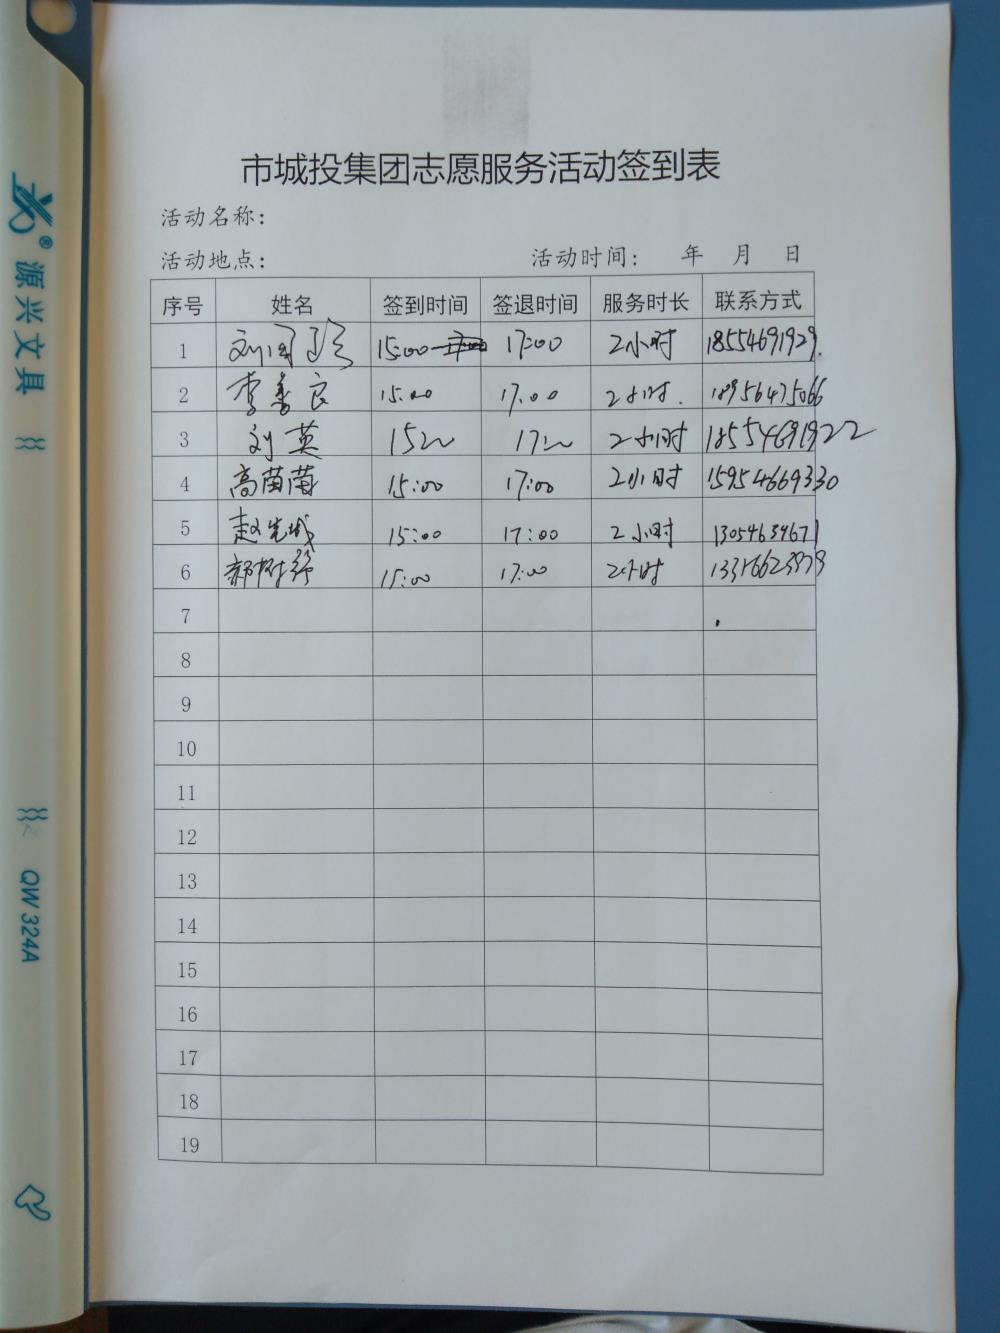 市城投集团志愿服务活动签到表
活动名称：
活动地点： 活动时间： 年 月 日
序号 姓名 签到时间 签退时间 服务时长 联系方式
1 15:00 17:00 2小时 18554691929
2 李善良 15:00 17:00 2小时. 18956475066
3 刘英 15 17 2小时 18554691922
4 高苗苗 15:00 17:00 2小时 15954669330
5 15:00 17:00 2小时 13054634671
6 15:00 17:00 2小时
7
8
9
10
11
12
13
14
15
16
17
18
19
源兴文具
QW 324A